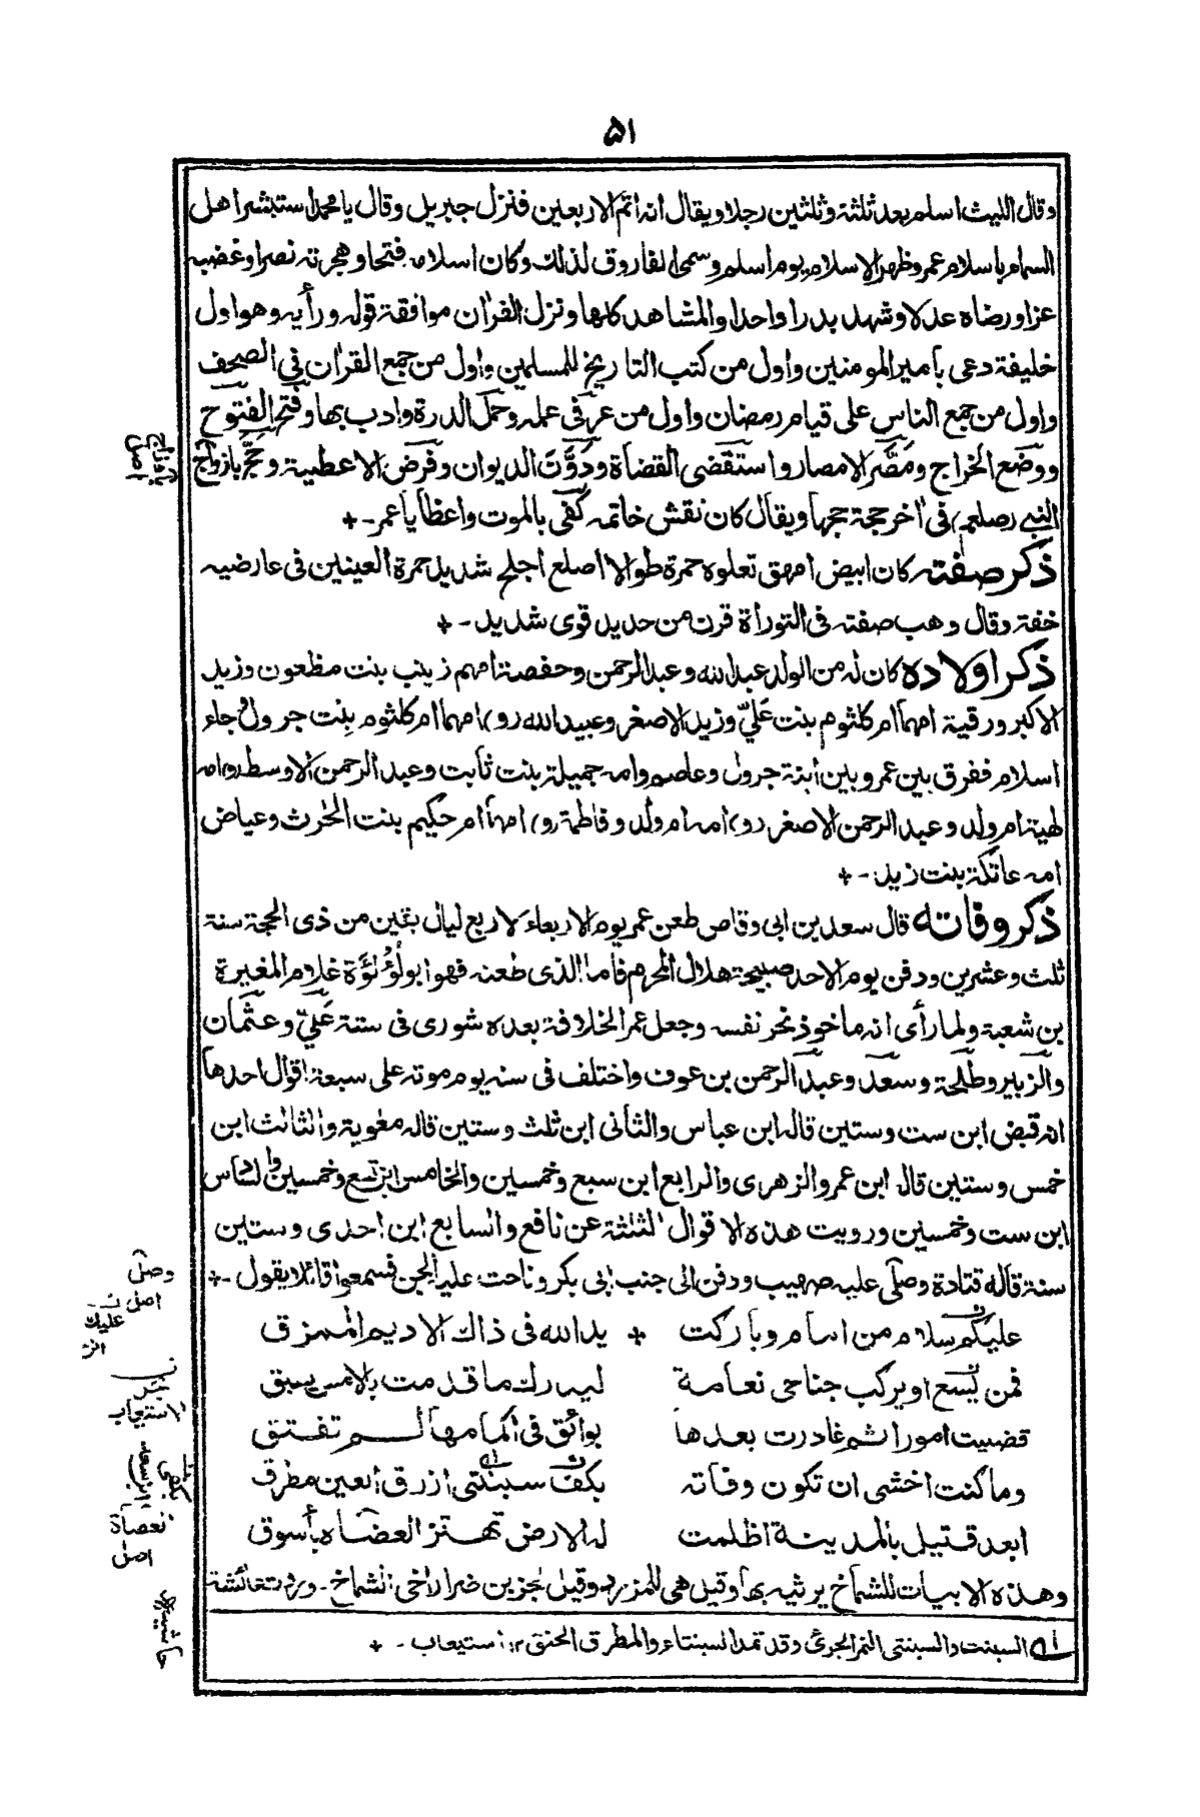 ۵۱
وقال الليث اسلم بعد ثلثة وثلثين رجلا ويقال انه اتم الاربعين فنزل جبريل وقال يا محمد استبشر اهل
السماء باسلام عمر وظهر الاسلام يوم اسلم وسمى الفاروق لذلك وكان اسلامه فتحا وهجرته نصرا وغضبه
عزا ورضاه عدلا وشهد بدرا واحدا والمشاهد كلها ونزل القرأن موافقة قوله ورأيه وهو اول
خليفة دعى بأمير المومنين واول من كتب التاريخ للمسلمين واول من جمع القرأن في الصحف
واول من جمع الناس على قيام رمضان واول من عس في عمله وحمل الدرة وادب بها وفتح الفتوح
ووضع الخراج ومَصَّر الامصار واستقضى القضاة ودَوَّنَ الديوان وفرض الاعطية وحَجَّ بازواج
النبي (صلعم) فى أخر حجة حجها ويقال كان نقش خاتمه كفى بالموت واعظا يا عمر -
ذكر صفته كان ابيض امهق تعلوه حمرة طوالا اصلع اجلح شديد حمرة العينين فى عارضيه
خفة وقال وهب صفته فى التوراة قرن من حديد قوى شديد -
ذكر اولاده كان له من الولد عبد الله وعبد الرحمن وحفصة امهم زينب بنت مظعون وزيد
الاكبر ورقية امهما ام كلثوم بنت عَليّ وزيد الاصغر وعبيد الله (و) امهما ام كلثوم بنت جرول جاء
اسلام ففرق بين عمر وبين أبنة جرول وعاصم وامه جميلة بنت ثابت وعبد الرحمن الاوسط (و) امه
لهية ام ولد وعبد الرحمن الاصغر (و) امه ام ولد وفاطمة (و) امها ام حكيم بنت الحٰرث وعياض
امه عاتكة بنت زيد -
ذكر وفاته قال سعد بن ابى وقاص طعن عمر يوم الاربعاء لاربع ليال بقين من ذى الحجة سنة
ثلث وعشرين ودفن يوم الاحد صبيحة هلال المحرم فاما الذى طعنه فهو ابو لُؤلؤَة غلام المغيرة
بن شعبة ولما رأى انه ماخوذ نحر نفسه وجعل عمر الخلافة بعده شورى فى ستة عَليّ وعثمان
والزبير وطلحة وسعد وعبد الرحمن بن عوف واختلف فى سنه يوم موته على سبعة اقوال احدها
انه قبض ابن ست وستين قاله ابن عباس والثانى ابن ثلث وستين قاله معٰوية والثالث ابن
خمس وستين قاله ابن عمر والزهرى والرابع ابن سبع وخمسين والخامس ابن تسع وخمسين والسادس
ابن ست وخمسين ورويت هذه الاقوال الثلثة عن نافع والسابع ابن احدى وستين
سنة قاله قتادة وصلى عليه صهيب ودفن الى جنب ابى بكر وناحت عليه الجن فسمعوا قائلا يقول -
عليكم سلام من امام وباركت يد الله فى ذاك الاديم الممزق
فمن يسع او يركب جناحى نعامة ليدرك ما قدمت بالامس يسبق
قضيت امورا ثم غادرت بعدها بوائق فى اكمامها لم تفتق
وما كنت اخشى ان تكون وفاته بكف سبنتى ازرق العين مطرق
ابعد قتيل بالمدينة اظلمت له الارض تهتز العضاه بأسوق
وهذه الابيات للشماخ يرثيه بها وقيل هى للمزرد وقيل لجز بن ضرار اخى الشماخ - وردت عائشة
له السبنت والسبنتى النمر الجرئ وقد تمد السبنتاء والمطرق الحنق ۱۲ استيعاب -
بافتاح
اصل
وصل
اصل
عليك
استيعاب
بكفى
ابن سعد
نعصاة
اصل
حاشيه